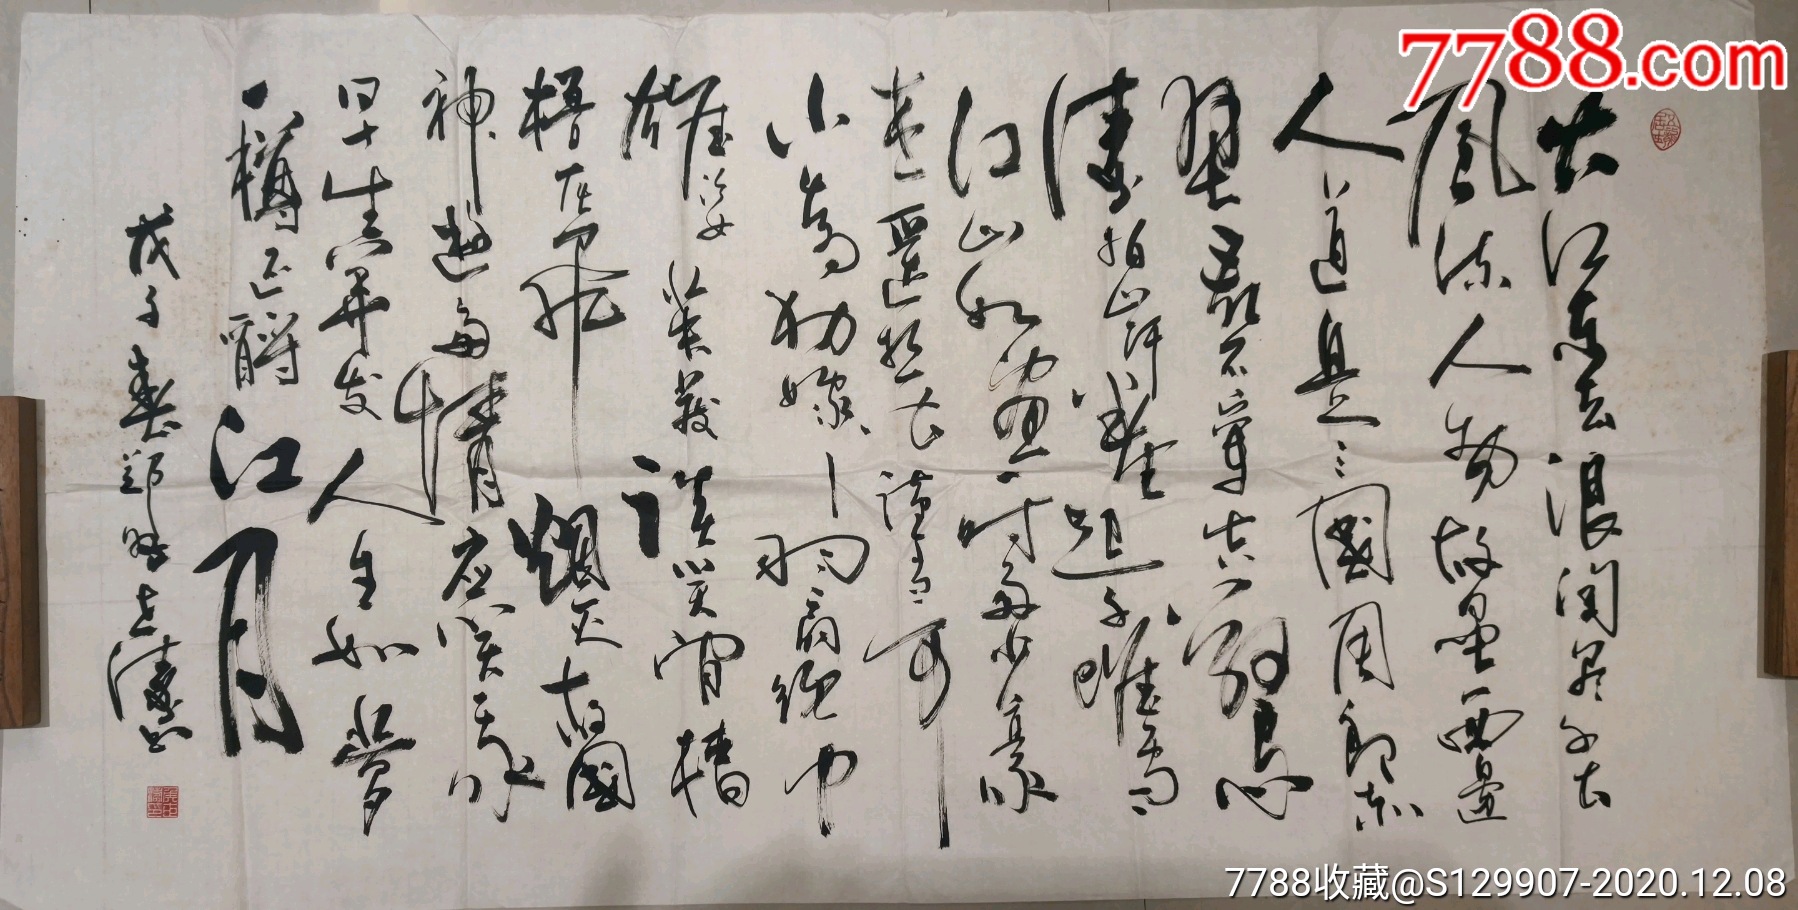 大江东去浪淘尽千古
风流人物故垒西边
人道是三國周郎赤
壁乱石穿空惊
涛拍岸卷起千堆雪
江山如画一时多少豪
杰遥想公瑾当年
小乔初嫁了羽扇纶巾
雄姿英發谈笑间樯
橹灰飞烟灭故國
神遊多情应笑我
早生华发人生如梦
一樽还酹江月
戊子春郑
7788.com
7788收藏@S129907-2020.12.08